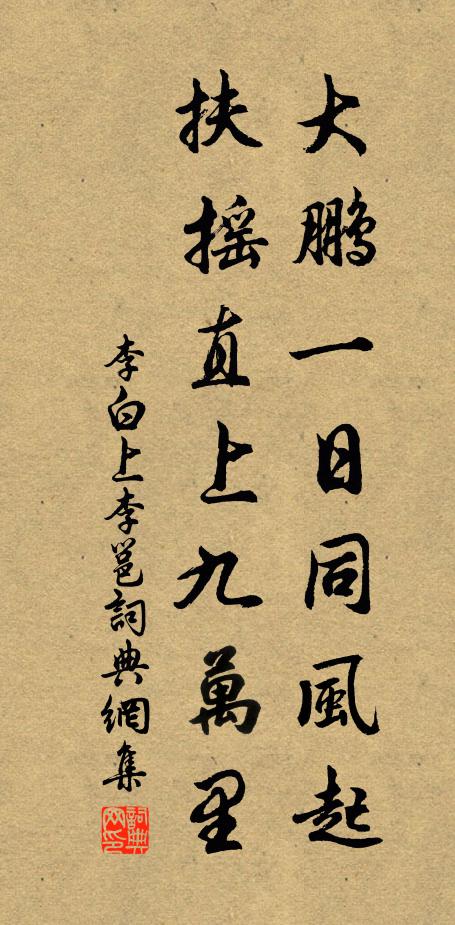 大鵬一日同風起
扶摇直上九萬里
李白上李邕詞典網集
詞典网印